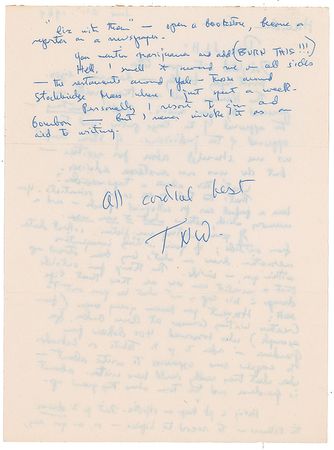 "live with them" — open a bookstore, become a
reporter on a newspaper.
You mention marijuana and add (BURN THIS!!!)
Hell, I smell it around me on all sides
— the restaurants around Yale — those around
Stockbridge Mass where I just spent a week.
Personally I resort to gin and
bourbon — but I never invoke it as an
aid to writing.
All cordial best
TNW.